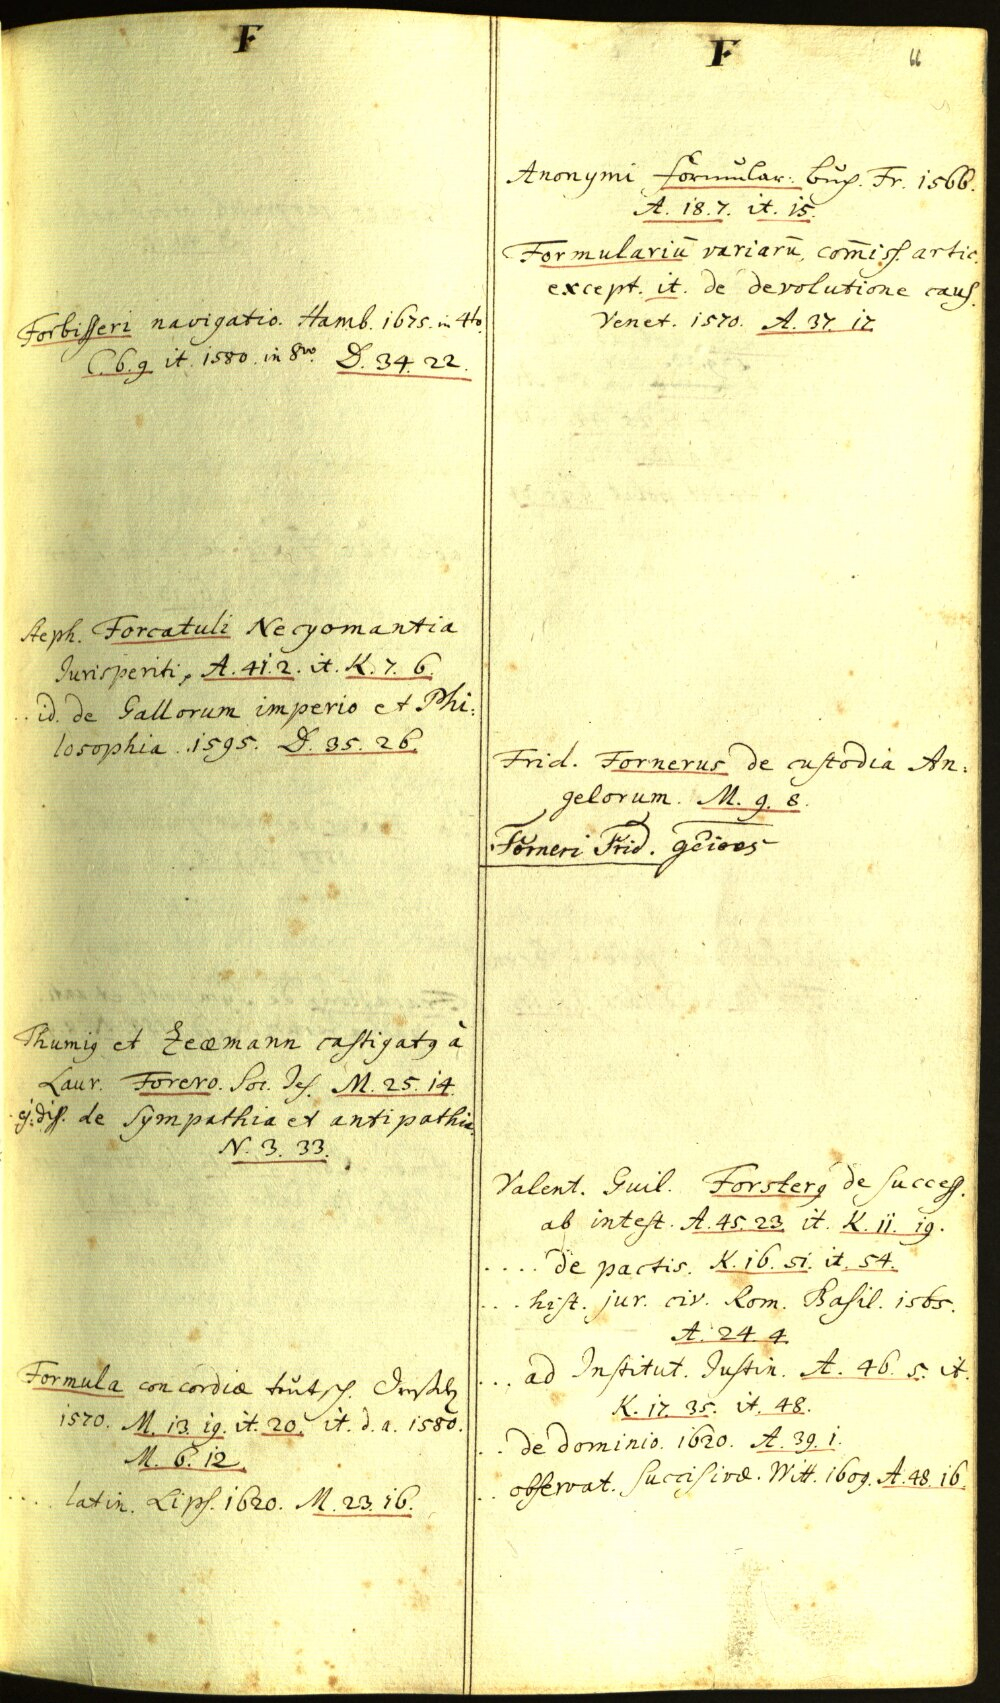 F
Forbisseri navigatio. Hamb. 1675. in 4to.
C. 6. 9 it. 1580. in 8vo. D. 34. 22.
Steph. Forcatuli Necyomantia
Jurisperiti, A. 41. 2. it. K. 7. 6.
.. id. de Gallorum imperio et Phi:
losophia. 1595. D. 35. 26.
Thumig et Zeæmann castigatg à
Laur. Forero. Soc. Jes. M. 25. 14
ej. diss. de Sympathia et antipathia.
N. 3. 33.
Formula concordiæ teütsch.
1570. M. 13. 19. it. 20. it. d. a. 1580.
M. 6. 12
.... latin. Lips. 1620. M. 23. 16.
F
66
Anonymi formular: buch. Fr. 1566.
A. 18. 7. it. 15.
Formulariū variarū, com̄iss. artic.
except. it. de devolutione caus.
Venet. 1570. A. 37. 17
Frid. Fornerus de custodia An:
gelorum. M. 9. 8.
Forneri Frid.
Valent. Guil. Forsterg de success.
ab intest. A. 45. 23 it. K. 11. 19.
.... de pactis. K. 16. 51. it. 54.
... hist. jur. civ. Rom. Basil. 1565.
A. 24. 4.
... ad Institut. Justin. A. 46. 5. it.
K. 17. 35. it. 48.
.. de dominio. 1620. A. 39. 1.
.. observat. succisivæ. Witt. 1609. A. 48. 16.